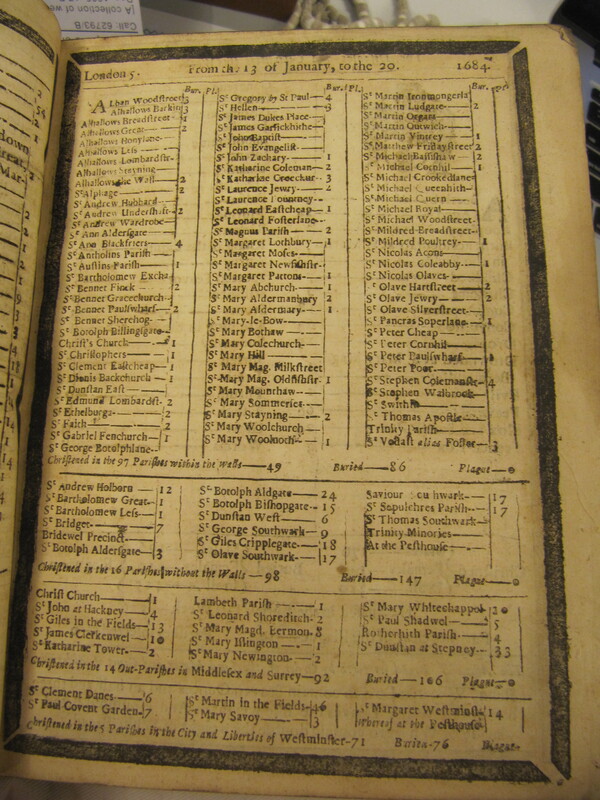 Call: 62793/B
[A collection of we
London 5. From the 13 of January, to the 20. 1684.
Bur. Pl.
Alban Woodstreet 3
Alhallows Barking 3
Alhallows Breadstreet 1
Alhallows Great 2
Alhallows Honylane
Alhallows Less
Alhallows Lombardstr.
Alhallows Stayning
Alhallows the Wall 2
St Alphage 2
St Andrew Hubbard
St Andrew Undershaft 2
St Andrew Wardrobe
St Ann Aldersgate
St Ann Blackfriers 4
St Antholins Parish
St Austins Parish 1
St Bartholomew Excha
St Bennet Finck 2
St Bennet Gracechurch
St Bennet Paulswharf 2
St Bennet Sherehog
St Botolph Billingsgate
Christ's Church 1
St Christophers 1
St Clement Eastcheap 1
St Dionis Backchurch 1
St Dunstan East
St Edmund Lombardst. 2
St Ethelburga 2
St Faith 2
St Gabriel Fenchurch 1
St George Botolphlane
Bur. Pl.
St Gregory by St Paul 4
St Hellen 3
St James Dukes Place 3
St James Garlickhithe
St John Baptist
St John Evangelist
St John Zachary 1
St Katharine Coleman 2
St Katharine Creechur. 3
St Laurence Jewry 4
St Laurence Pountney
St Leonard Eastcheap 1
St Leonard Fosterlane
St Magnus Parish 2
St Margaret Lothbury 1
St Margaret Moses
St Margaret Newfishstr.
St Margaret Pattons 1
St Mary Abchurch 1
St Mary Aldermanbury 2
St Mary Aldermary 1
St Mary-le-Bow
St Mary Bothaw
St Mary Colechurch
St Mary Hill
St Mary Mag. Milkstreet
St Mary Mag. Oldfishstr. 1
St Mary Mounthaw
St Mary Sommerset
St Mary Stayning 2
St Mary Woolchurch
St Mary Woolnoth 1
Bur.
St Martin Ironmongerla
St Martin Ludgate 2
St Martin Orgars
St Martin Outwich
St Martin Vintrey 1
St Matthew Fridaystreet 2
St Michael Bassishaw 2
St Michael Cornhil 1
St Michael Crookedlane
St Michael Queenhith
St Michael Quern
St Michael Royal
St Michael Woodstreet
St Mildred Breadstreet
St Mildred Poultrey 1
St Nicolas Acons
St Nicolas Coleabby 1
St Nicolas Olaves
St Olave Hartstreet 2
St Olave Jewry 2
St Olave Silverstreet
St Pancras Soperlane 1
St Peter Cheap
St Peter Cornhil
St Peter Paulswharf 1
St Peter Poor
St Stephen Colemanstr. 4
St Stephen Walbrook
St Swithin
St Thomas Apostle
Trinity Parish
St Vedast alias Foster 3
Christned in the 97 Parishes within the Walls 49 Buried 86 Plague 0
St Andrew Holborn 12
St Bartholomew Great 1
St Bartholomew Less 1
St Bridget 7
Bridewel Precinct
St Botolph Aldersgate 3
St Botolph Aldgate 24
St Botolph Bishopgate 15
St Dunstan West 6
St George Southwark 9
St Giles Cripplegate 18
St Olave Southwark 17
Saviour Southwark 17
St Sepulchres Parish 17
St Thomas Southwark
Trinity Minories
At the Pesthouse
Christned in the 16 Parishes without the Walls 98 Buried 147 Plague 0
Christ Church 1
St John at Hackney 4
St Giles in the Fields 13
St James Clerkenwel 10
St Katharine Tower 2
Lambeth Parish 1
St Leonard Shoreditch 2
St Mary Magd. Bermon. 8
St Mary Islington 1
St Mary Newington 2
St Mary Whitechappel 20
St Paul Shadwel 5
Rotherhith Parish 4
St Dunstan at Stepney 33
Christned in the 14 Out-Parishes in Middlesex and Surrey 92 Buried 106 Plague 0
St Clement Danes 6
St Paul Covent Garden 7
St Martin in the Fields 46
St Mary Savoy 3
St Margaret Westminst. 14
whereof at the Pesthouse
Christned in the 5 Parishes in the City and Liberties of Westminster 71 Buried 76 Plague